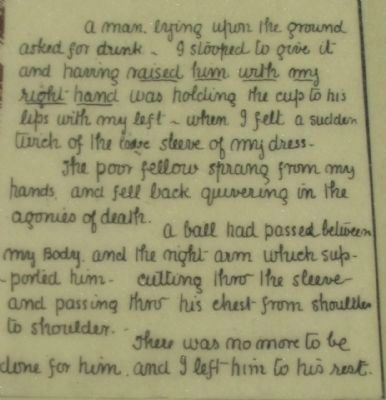 a man lying upon the ground
asked for drink - I stooped to give it
and having raised him with my
right hand was holding the cup to his
lips with my left - when I felt a sudden
twich of the loose sleeve of my dress -
The poor fellow sprang from my
hands and fell back quivering in the
agonies of death.
a ball had passed between
my Body, and the right arm which sup-
-ported him - cutting thro the sleeve
and passing thro his chest from shoulder
to shoulder. -
There was no more to be
done for him, and I left him to his rest.